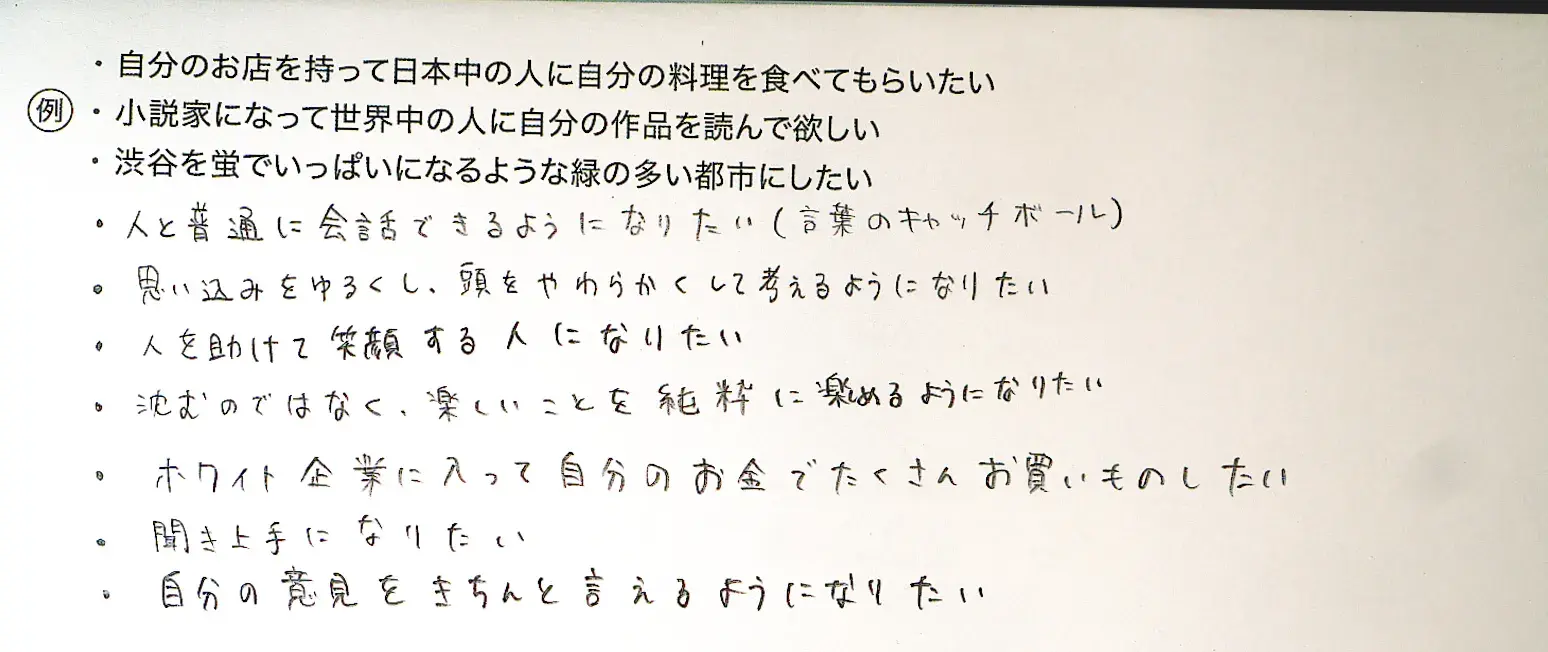 ・自分のお店を持って日本中の人に自分の料理を食べてもらいたい
例 ・小説家になって世界中の人に自分の作品を読んで欲しい
・渋谷を蛍でいっぱいになるような緑の多い都市にしたい
・人と普通に会話できるようになりたい(言葉のキャッチボール)
・思い込みをゆるくし、頭をやわらかくして考えるようになりたい
・人を助けて笑顔する人になりたい
・沈むのではなく、楽しいことを純粋に楽めるようになりたい
・ホワイト企業に入って自分のお金でたくさんお買いものしたい
・聞き上手になりたい
・自分の意見をきちんと言えるようになりたい